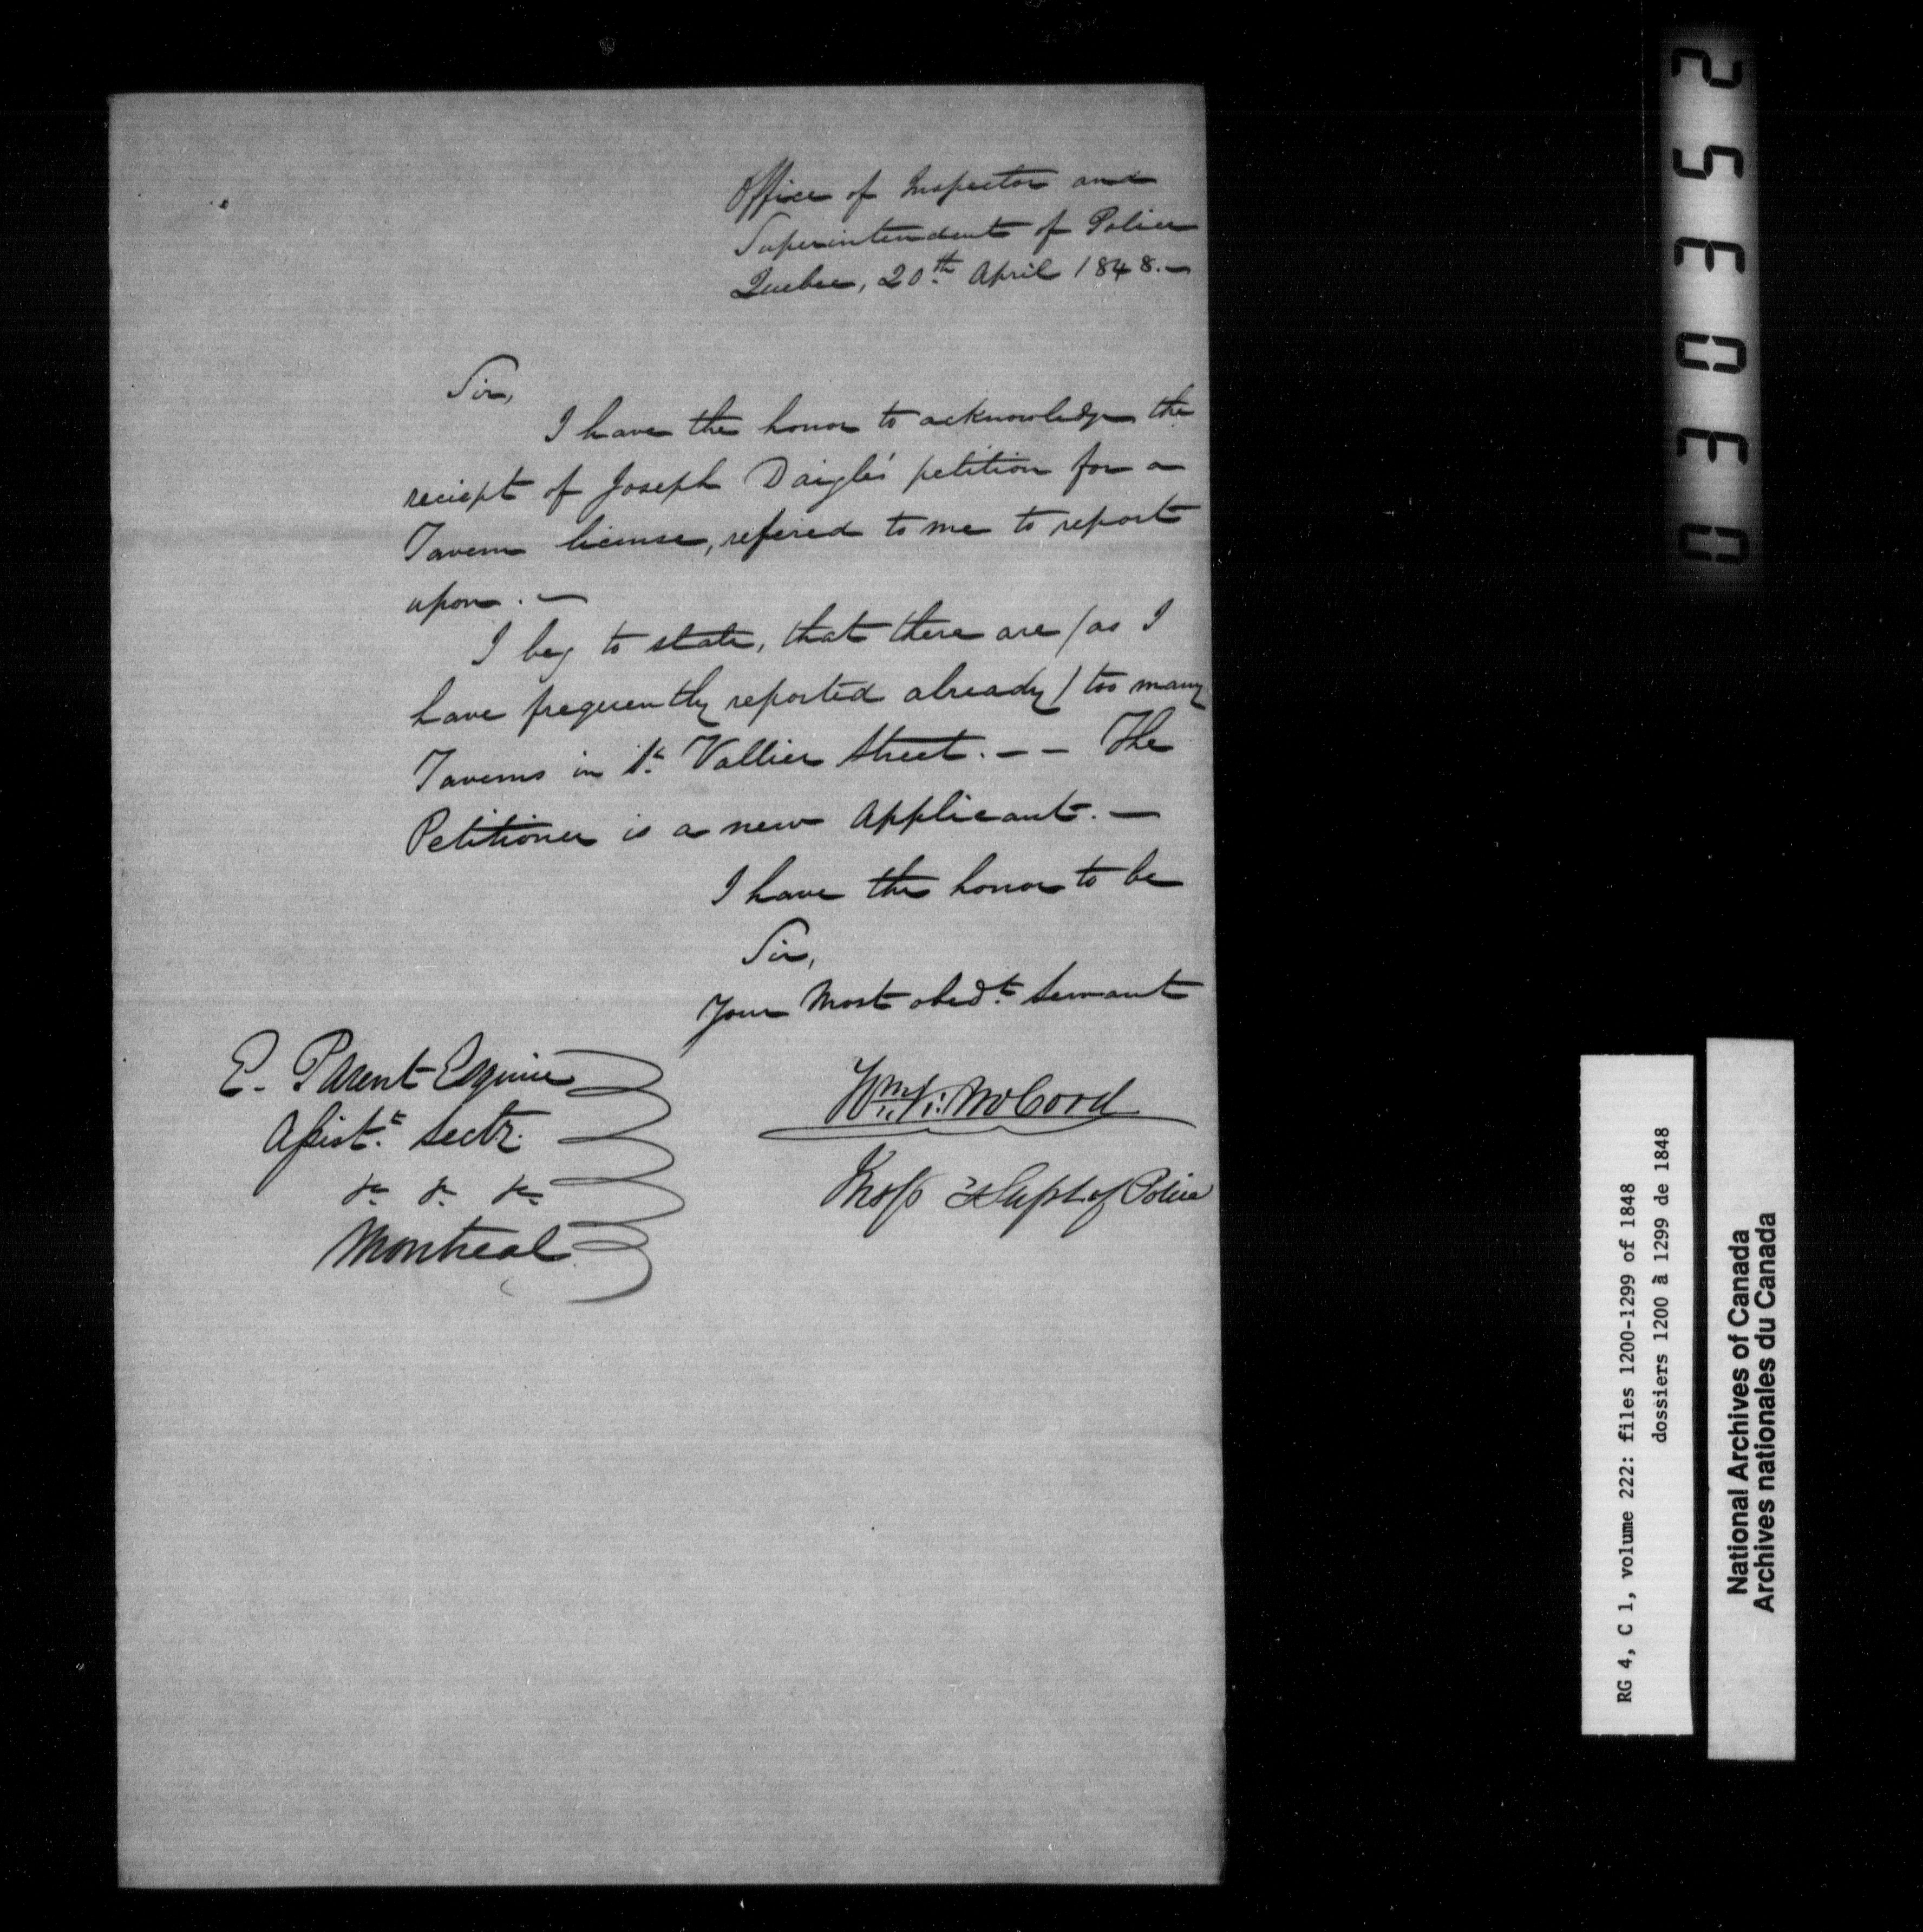 Office of Inspector and
Superintendent of Police
Quebec, 20th. April 1848.—
Sir,
I have the honor to acknowledge the
reciept of Joseph Daigle's petition for a
Tavern license, refered to me to report
upon. —
I beg to state, that there are (as I
have frequently reported already) too many
Taverns in St. Vallier Street. — — The
Petitioner is a new Applicant. —
I have the honor to be
Sir,
Your Most obedt. Servant
Wm. McCord
Insp & Supt of Police
E. Parent Esquire
Assistt. Secty.
&c &c &c
Montreal
030352
RG 4, C 1, volume 222: files 1200-1299 of 1848
dossiers 1200 à 1299 de 1848
National Archives of Canada
Archives nationales du Canada